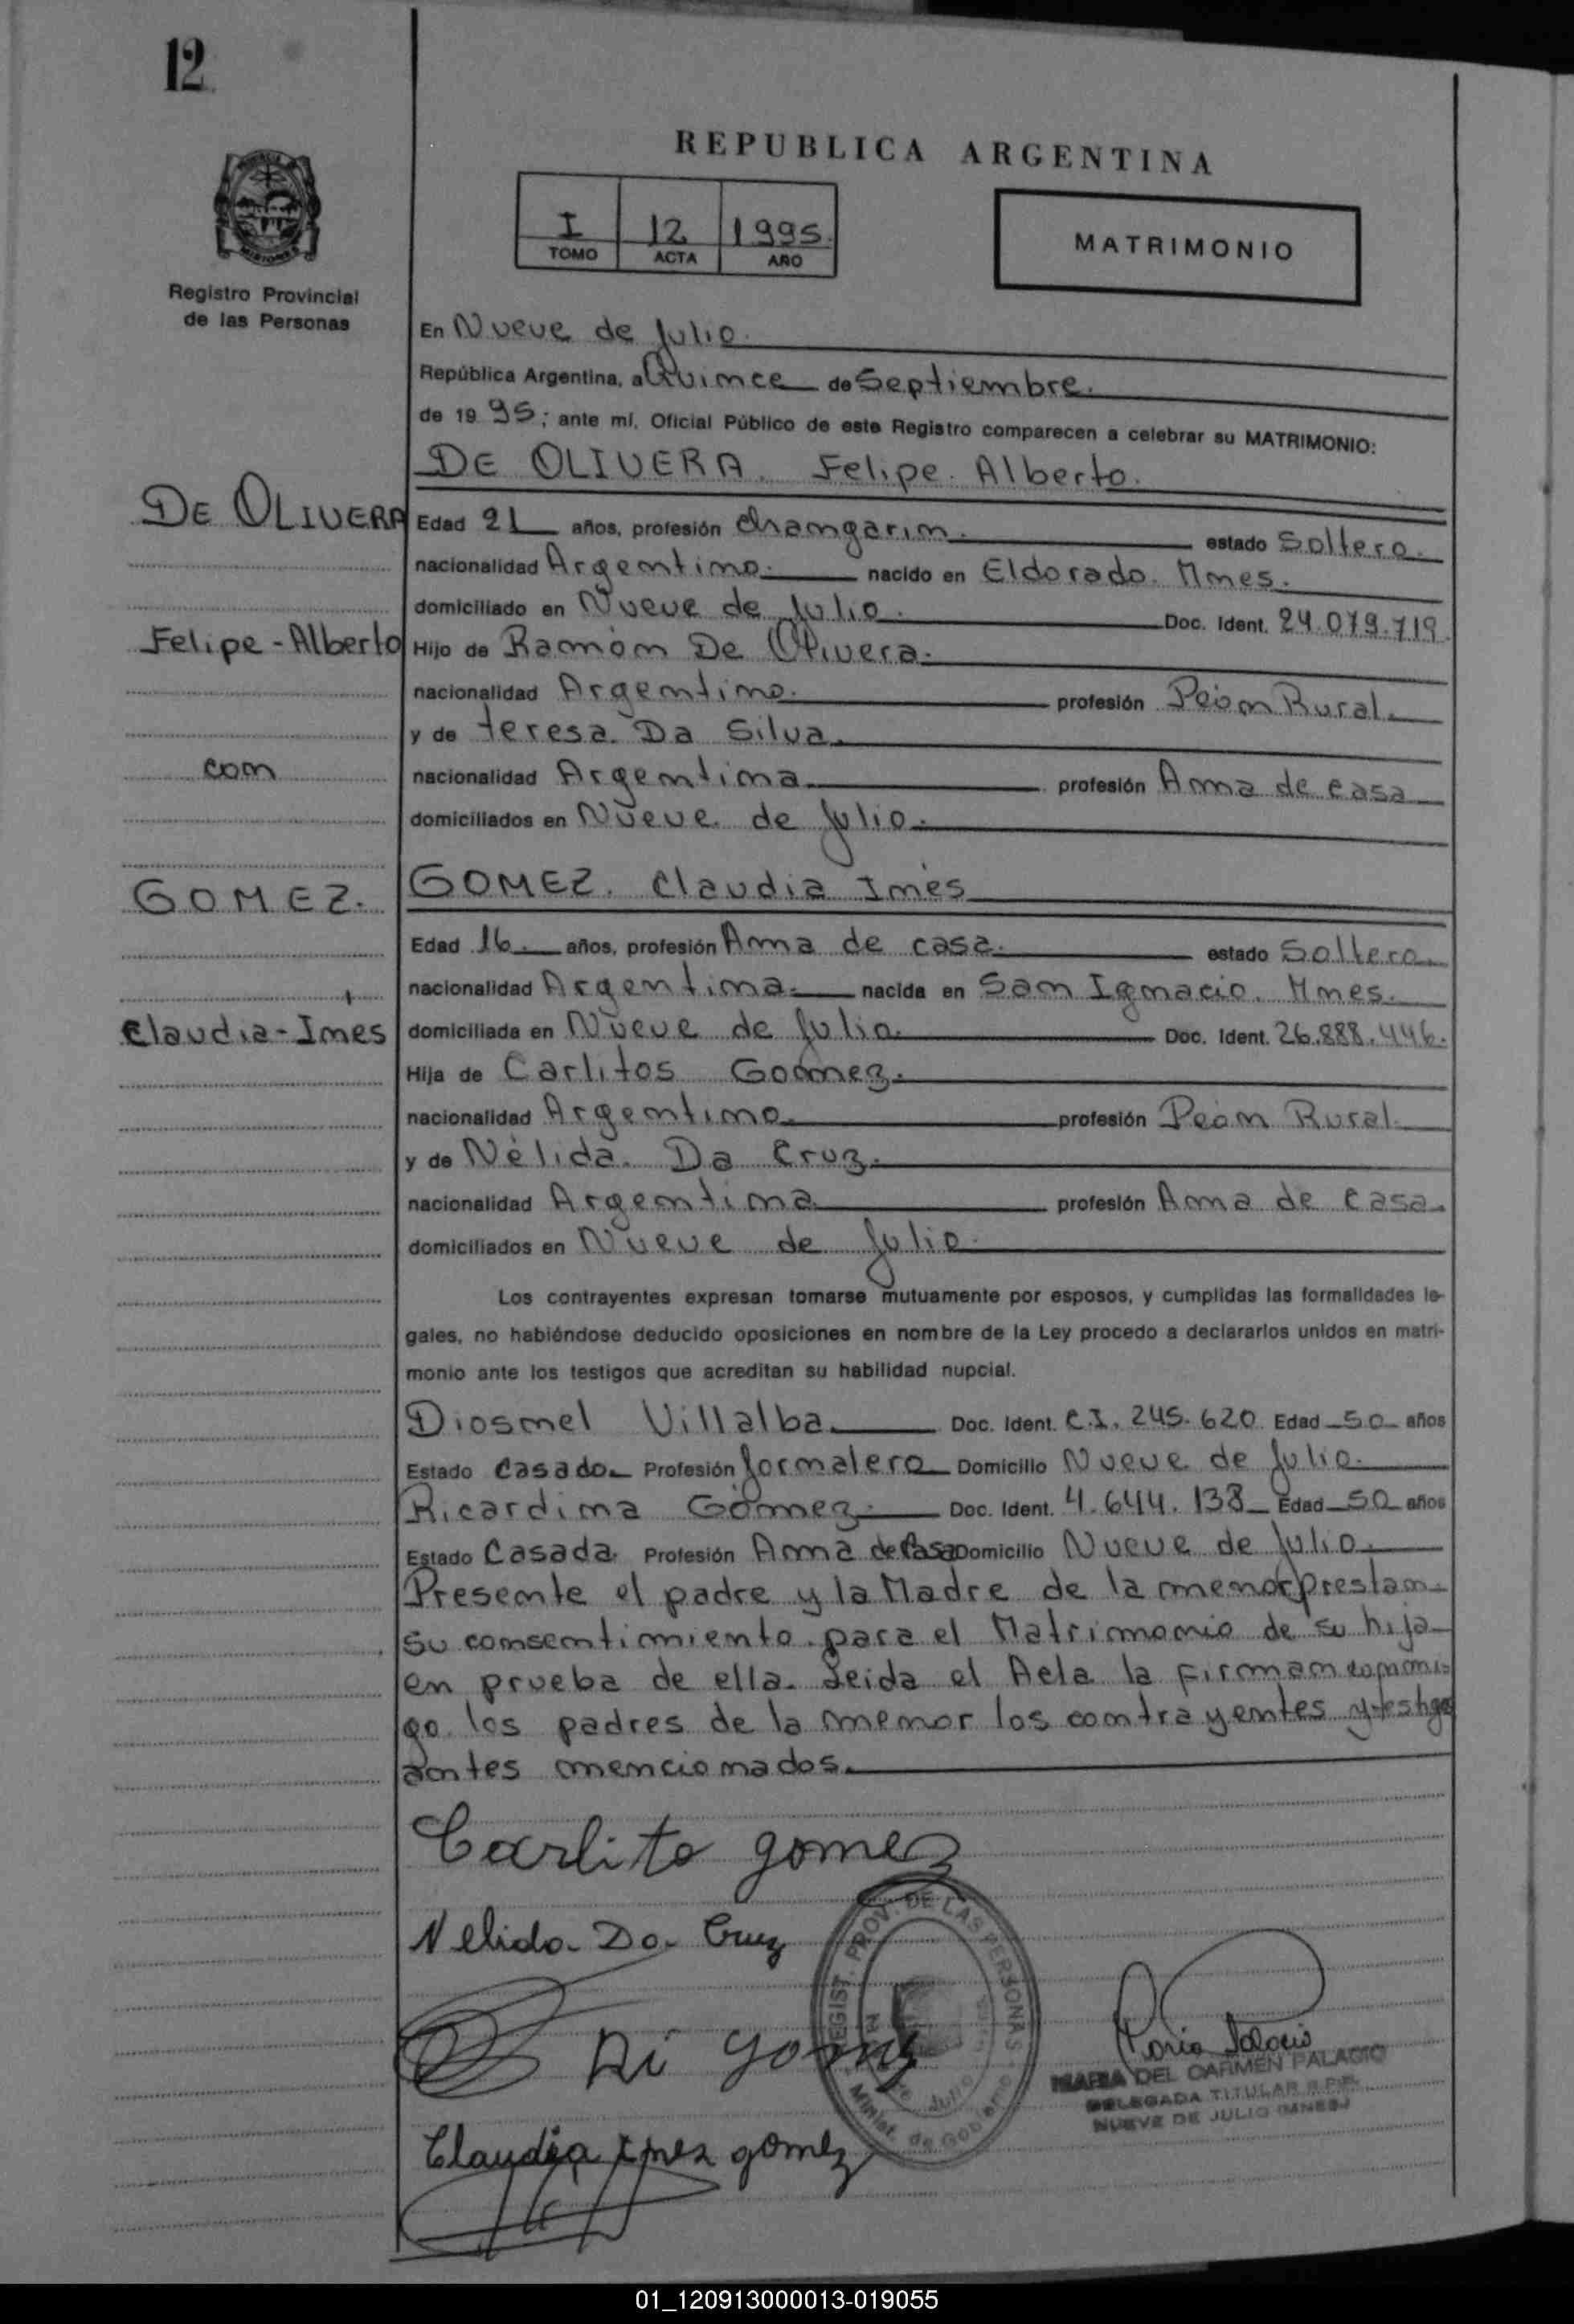 12
REPUBLICA ARGENTINA
I 12 1995
TOMO ACTA AÑO
MATRIMONIO
Registro Provincial
de las Personas
En Nueve de Julio.
República Argentina, a Quince de Septiembre.
de 19 95; ante mí, Oficial Público de este Registro comparecen a celebrar su MATRIMONIO:
DE OLIVERA. Felipe. Alberto.
DE OLIVERA
Edad 21 años, profesión changarin. estado Soltero.
nacionalidad Argentino. nacido en Eldorado. Mnes.
domiciliado en Nueve de Julio. Doc. Ident. 24.079.719.
Felipe-Alberto
Hijo de Ramón De Olivera.
nacionalidad Argentino. profesión Peón Rural.
y de teresa. Da Silva.
con
nacionalidad Argentina profesión Ama de casa
domiciliados en Nueve. de Julio.
GOMEZ.
GOMEZ. Claudia Inés
Edad 16. años, profesión Ama de casa. estado Soltera.
nacionalidad Argentina. nacida en San Ignacio. Mnes.
Claudia-Ines
domiciliada en Nueve de Julio. Doc. Ident. 26.888.446.
Hija de Carlitos Goómez.
nacionalidad Argentino. profesión Peón Rural.
y de Nélida. Da Cruz.
nacionalidad Argentina profesión Ama de casa.
domiciliados en Nueve de Julio.
Los contrayentes expresan tomarse mutuamente por esposos, y cumplidas las formalidades le-
gales, no habiéndose deducido oposiciones en nombre de la Ley procedo a declararlos unidos en matri-
monio ante los testigos que acreditan su habilidad nupcial.
Diosnel Villalba. Doc. Ident. C.I. 245.620 Edad 50 años
Estado Casado. Profesión Jornalero Domicilio Nueve de Julio.
Ricardina Gómez. Doc. Ident. 4.644.138 Edad 50 años
Estado Casada. Profesión Ama de Casa Domicilio Nueve de Julio.
Presente el padre y la Madre de la menor prestan
su consentimiento para el Matrimonio de su hija
en prueba de ella. Leida el Acta la firman conmi-
go los padres de la menor los contrayentes y testigo
antes mencionados.
Carlito gomez
Nelida Da Cruz
Ri gomez
Claudia ines gomez
REGIST. PROV. DE LAS PERSONAS
Minist. de Gobierno
Maria Palacio
MARIA DEL CARMEN PALACIO
DELEGADA TITULAR R.P.P.
NUEVE DE JULIO (MNES.)
01_120913000013-019055